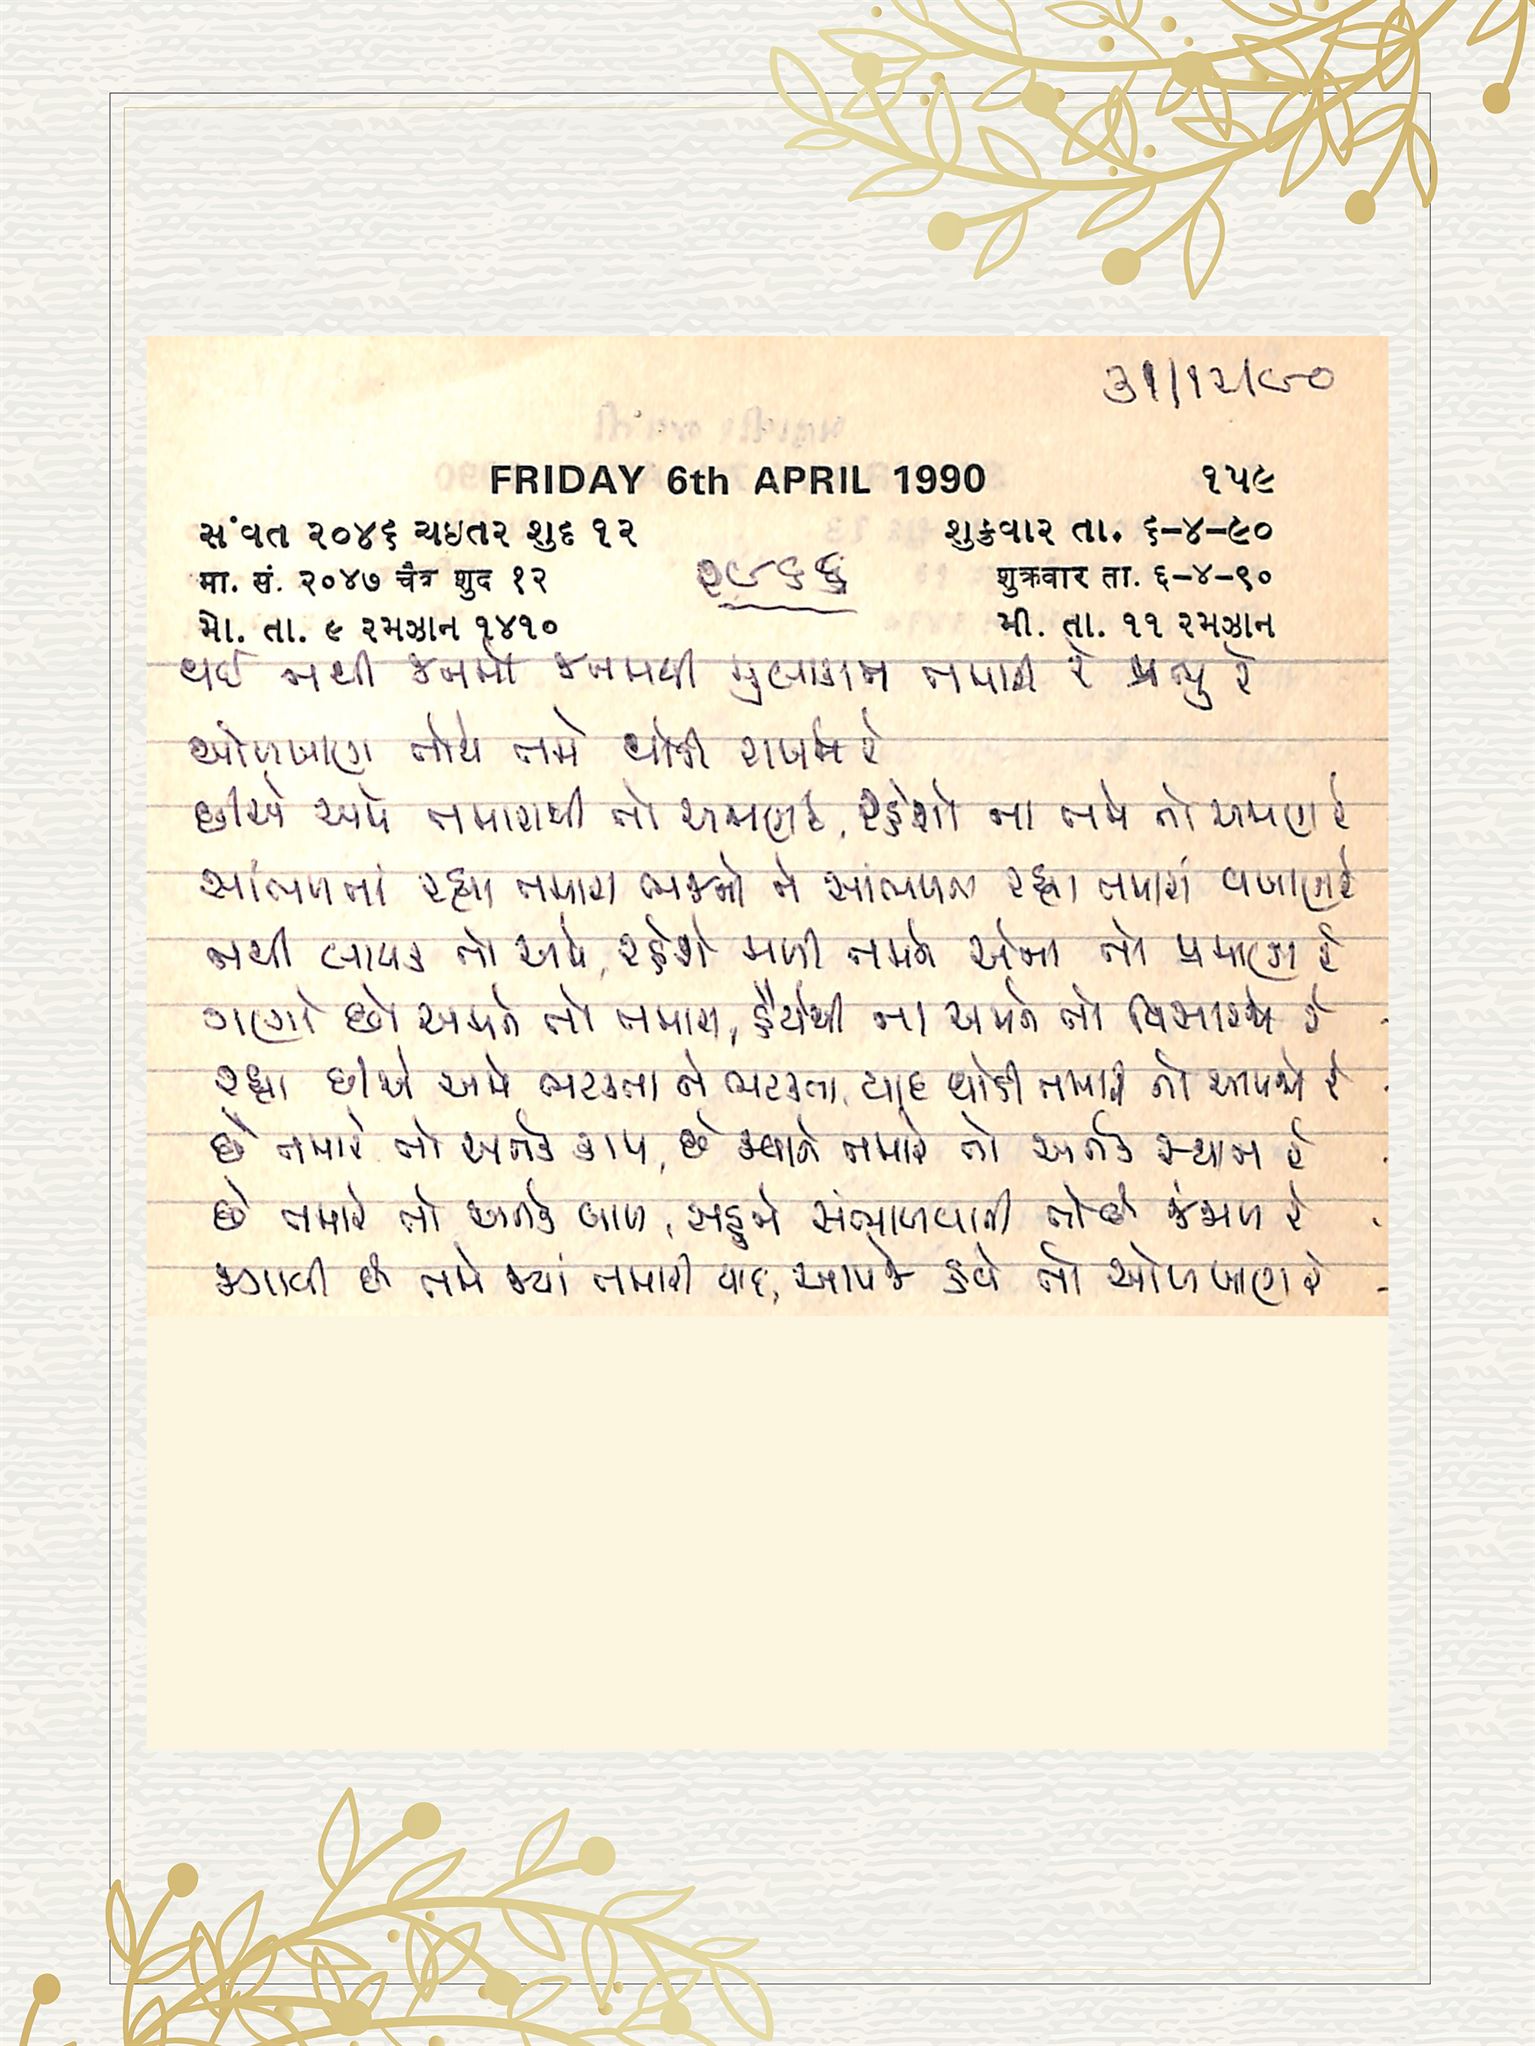 ૩૧/૧૨/૯૦
FRIDAY 6th APRIL 1990 ૧૫૯
સંવત ૨૦૪૬ ચઇતર શુદ ૧૨ શુક્રવાર તા. ૬-૪-૯૦
मा. सं. २०४७ चैत्र शुद १२ शुक्रवार ता. ६-४-९०
મો. તા. ૯ રમઝાન ૧૪૧૦ મી. તા. ૧૧ રમઝાન
૨૯૬૬
થઈ નથી જનમોજનમથી મુલાકાત તમારી રે પ્રભુ રે
ઓળખાણ તોયે તમે થોડી રાખજો રે
છીએ અમે તમારાથી તો અજાણ રે, રહેશો ના તમે તો અજાણ રે
સાંભળતાં રહ્યા તમારા ભક્તો ને સાંભળજો રહ્યા તમારાં વખાણ રે
નથી લાયક તો અમે, રહેશે મળી તમને એના તો પ્રમાણ રે
ગણો છો અમને તો તમારા, હૈયેથી ના અમને તો વિસારજો રે
રહ્યા છીએ અમે ભટકતા ને ભટકતા, યાદ થોડી તમારી તો આપજો રે
છે તમારે તો અનેક કામ, છે જ્યારે તમારે તો અનેક સ્થાન રે
છે તમારે તો અનેક બાળ, સહુને સંભાળવાની તો છે જંજાળ રે
જગાવી છે તમે જ્યાં તમારી યાદ, આપજે હવે તો ઓળખાણ રે